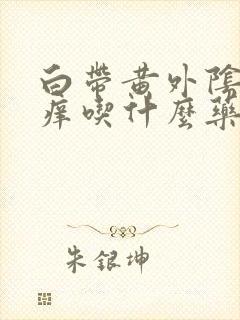 白帶黄外陰
痒喫什麼藥
朱銀坤